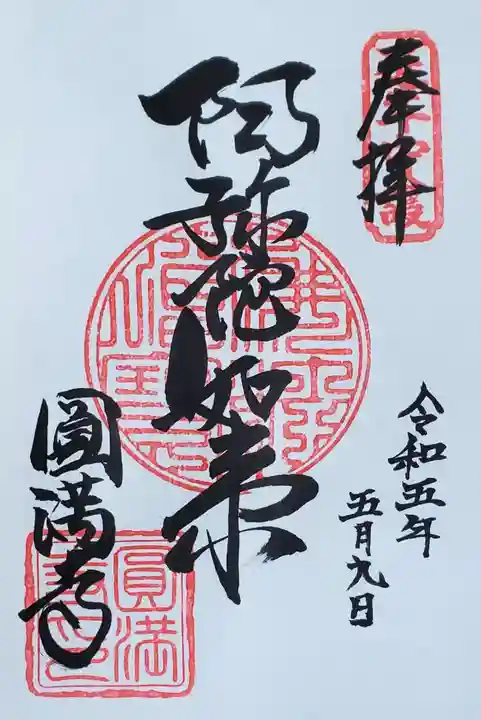 奉拝
阿弥陀如来
令和五年
五月九日
圓満寺
圓満
寺印